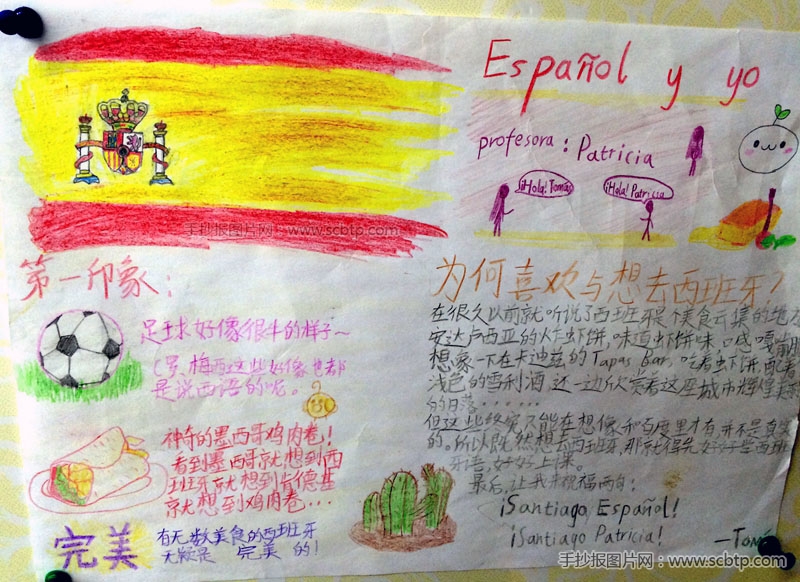 Español y yo
profesora : Patricia
¡Hola! Tomás
¡Hola! Patricia
手抄报图片网:www.scbtp.com
第一印象:
足球好像很牛的样子~
C罗,梅西这些好像也都
是说西语的呢。
神奇的墨西哥鸡肉卷!
看到墨西哥就想到西
班牙就想到肯德基
就想到鸡肉卷...
完美
有无数美食的西班牙
无疑是 完美 的!
为何喜欢与想去西班牙?
在很久以前就听说了西班牙是个美食云集的地方
安达卢西亚的炸虾饼,味道虾饼味
想象一下在卡迪兹的Tapas Bar,吃着虾饼,配着
浅色的雪利酒,还一边欣赏着这座城市辉煌
的日落......
但这些终究只能在想像和百度里才有,并不是真实
的。所以既然想去西班牙,那就得先好好学西班
牙语,好好上课。
最后,让我来祝福两句:
¡Santiago, Español!
¡Santiago Patricia!
手抄报图片网:www.scbtp.com